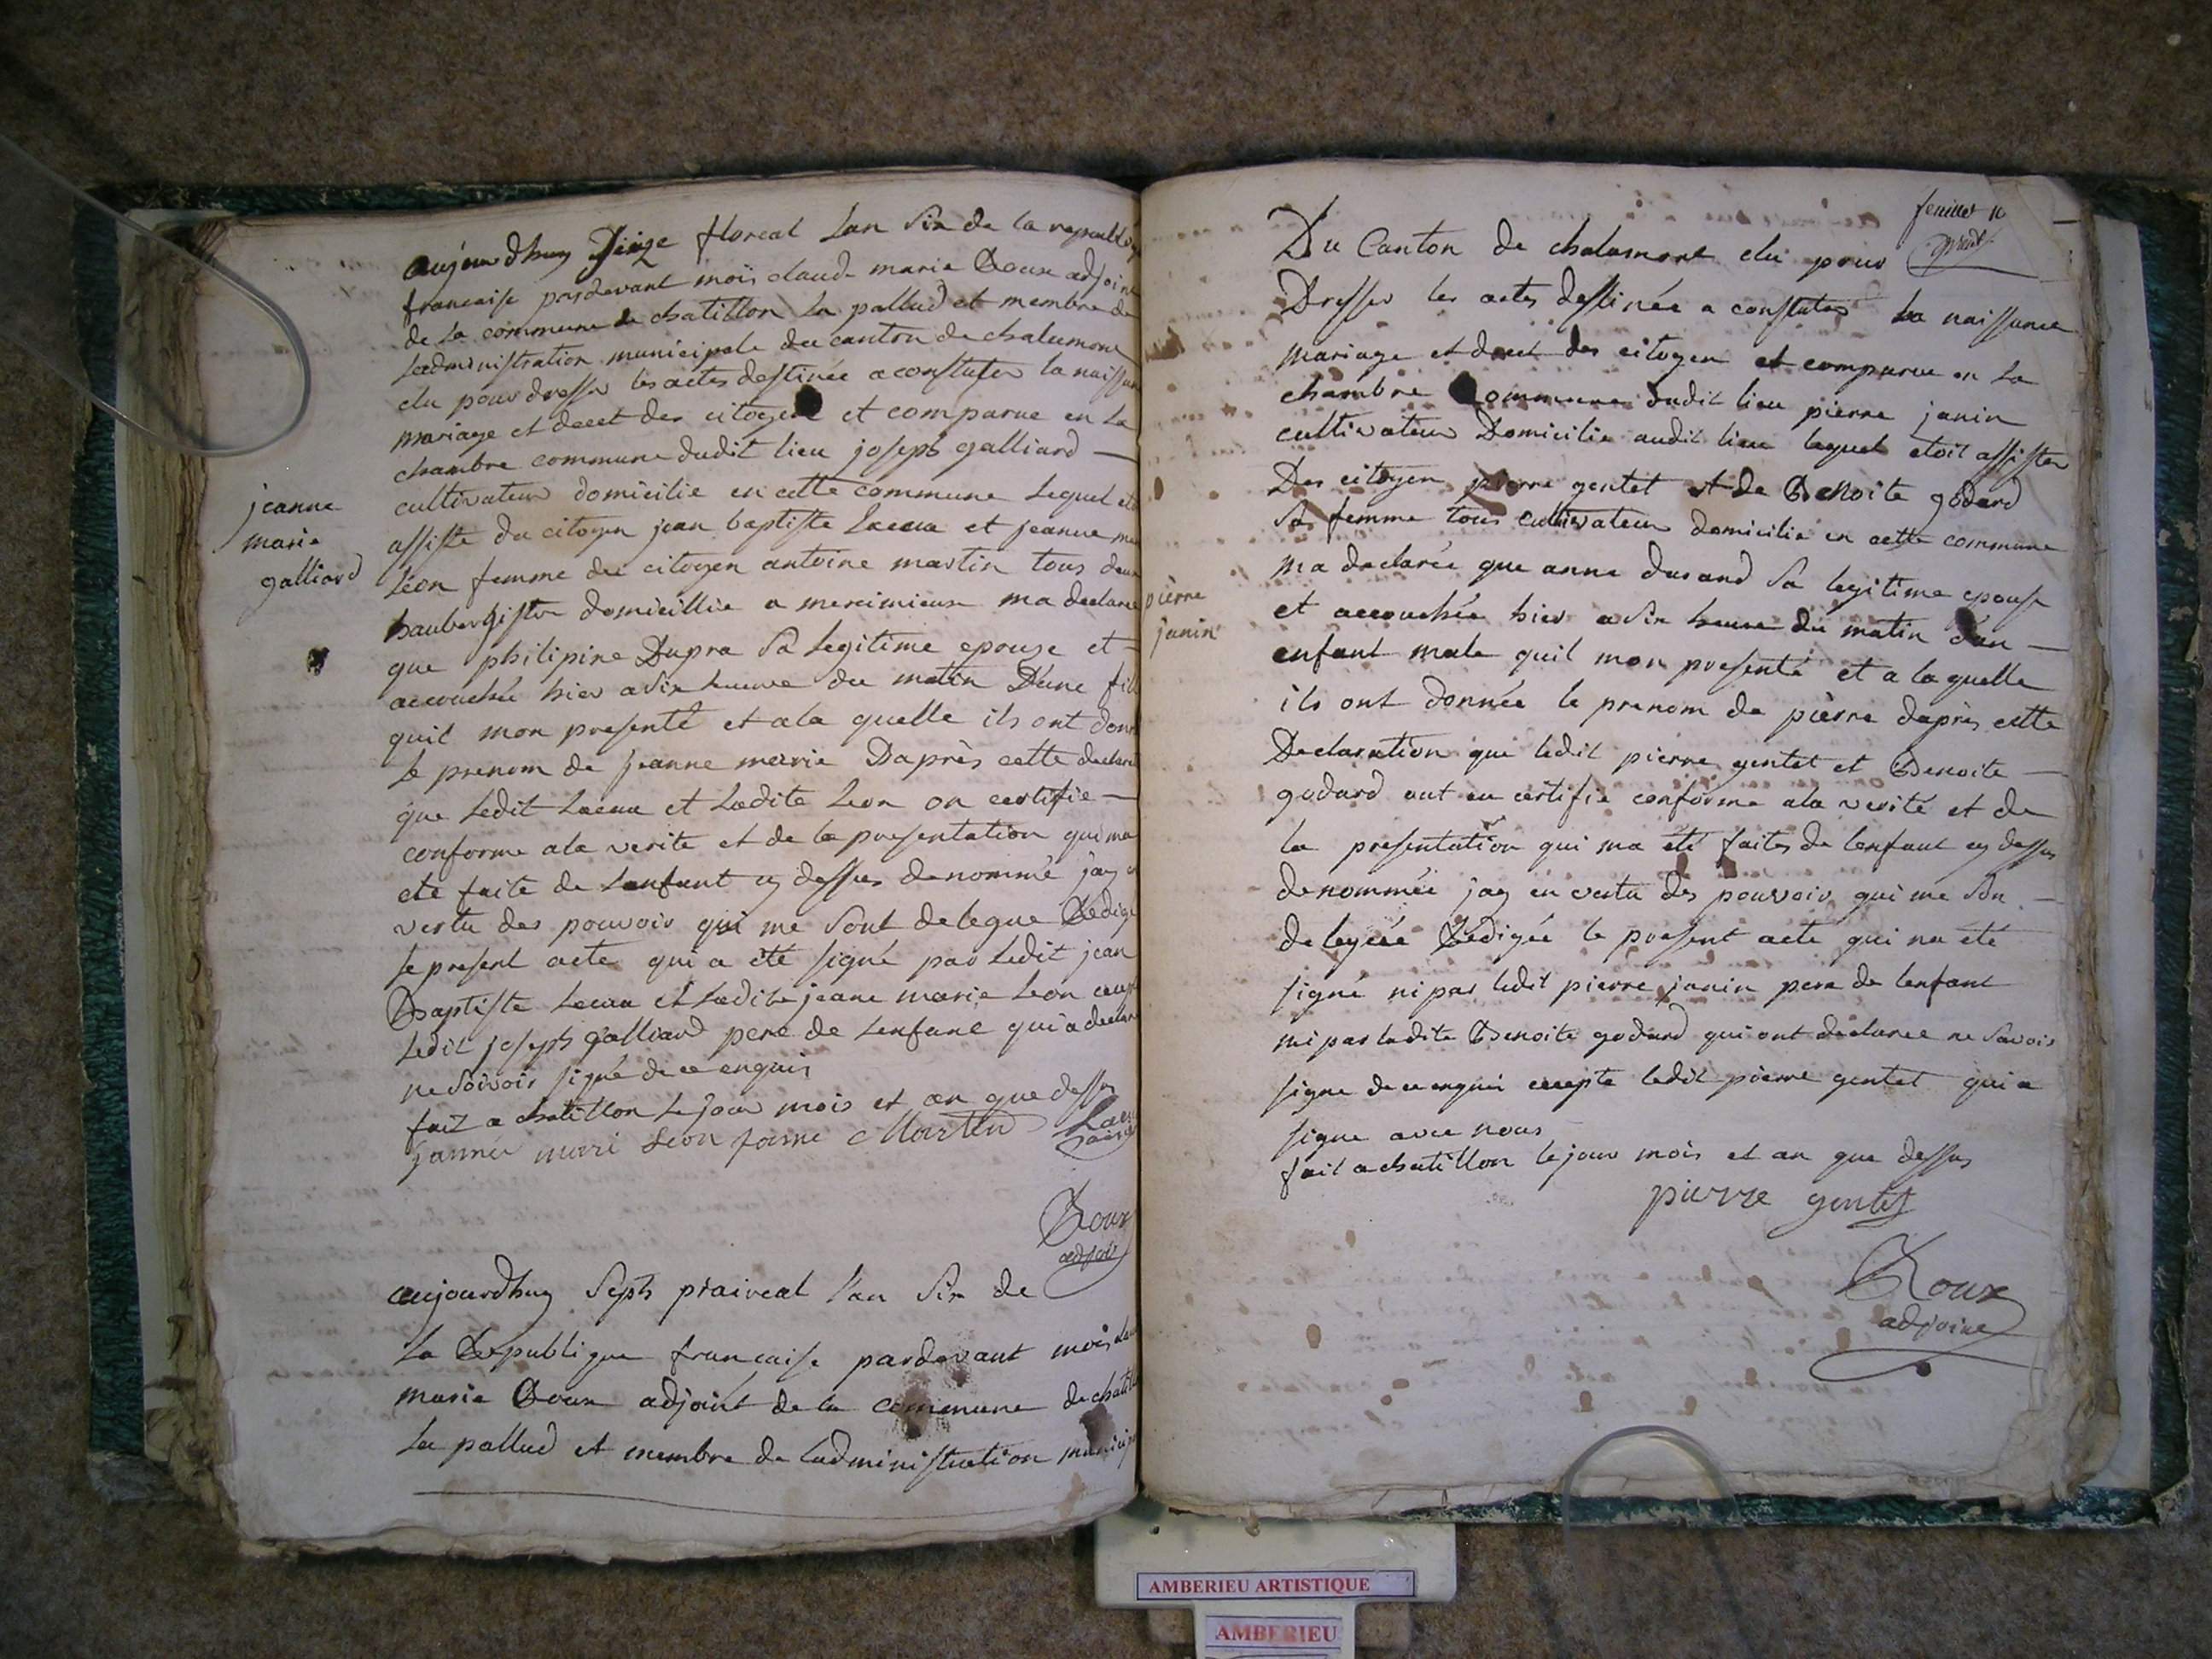 aujourdhuy Seize floreal Lan Six de la republiq
francaise pardevant mois claude marie Roux adjoint
de La commune de chatillon La pallud et membre de
Ladministration municipale du canton de chalamont
elu pour dresser les actes destinée a constater la naissan
mariage et decet des citoyen et comparue en La
chambre commune dudit lieu joseph galliard —
cultivateur domicilie en cette commune Lequel
assiste du citoyen jean baptiste Lacua et jeanne
Léon femme du citoyen antoine martin tous deux
haubergiste domicillie a mereimieux ma declaree
que philipine Dupra Sa Legitime epouze et —
accouchée hier a Six heure du matin D'une fill
quil mon presenté et a la quelle ils ont donn
le prenom de jeanne marie Daprès cette declara
que Ledit Lacua et Ladite Leon on certifie —
conforme ala verite et de la presentation qui ma
eté faite de Lenfant cy dessus denommé jay
vertu des pouvoir qui me Sont delegue Redige
le present acte qui a été signé par Ledit jean
Baptiste Lacua et Ladite jeane marie Leon
Ledit joseph galliard pere de Lenfant qui a declar
ne Savoir signé de ce enquis
fait a chatillon Le jour mois et an que dessus
jannéé mari Léon fame Martin
Roux
adjoin
aujourdhuy Septs praireal l'an Six de
La Republique francaise pardevant mois
marie Roux adjoint de la commune de chatill
La pallud et membre de Ladministration municip
jeanne
marie
galliard
feuillet 10
Du Canton de chalamont elu pour
Dresser les actes destinée a constater La naissance
mariage et decet des citoyen et comparue en La
chambre Commune dudit lieu pierre janin
cultivateur Domicilie audit lieu lequel etoit assister
Des citoyen pierre gentet et de Benoite godard
Sa femme tous cultivateur domicilie en cette commune
ma declarée que anne durand Sa legitime epouse
et accouchée hier a Six heure du matin dun —
enfant male quil mon presenté et a la quelle
ils ont donnée le prenom de pierre daprès cette
Declaration que ledit pierre gentet et Benoite —
godard ont eu certifie conforme ala verité et de
la presentation qui ma été faites de lenfant cy dessus
denommée jay en vertu des pouvoir qui me Son —
deleguée Rédigée le present acte qui na été
signé ni par ledit pierre janin pere de lenfant
ni par ladite Benoite godard qui ont declaree ne Savoir
signe de ce enquis excepte ledit pierre gentet qui a
signe avec nous
fait a chatillon le jour mois et an que dessus
pierre gentet
Roux
adjoint
pierre
janin
AMBERIEU ARTISTIQUE
AMBERIEU